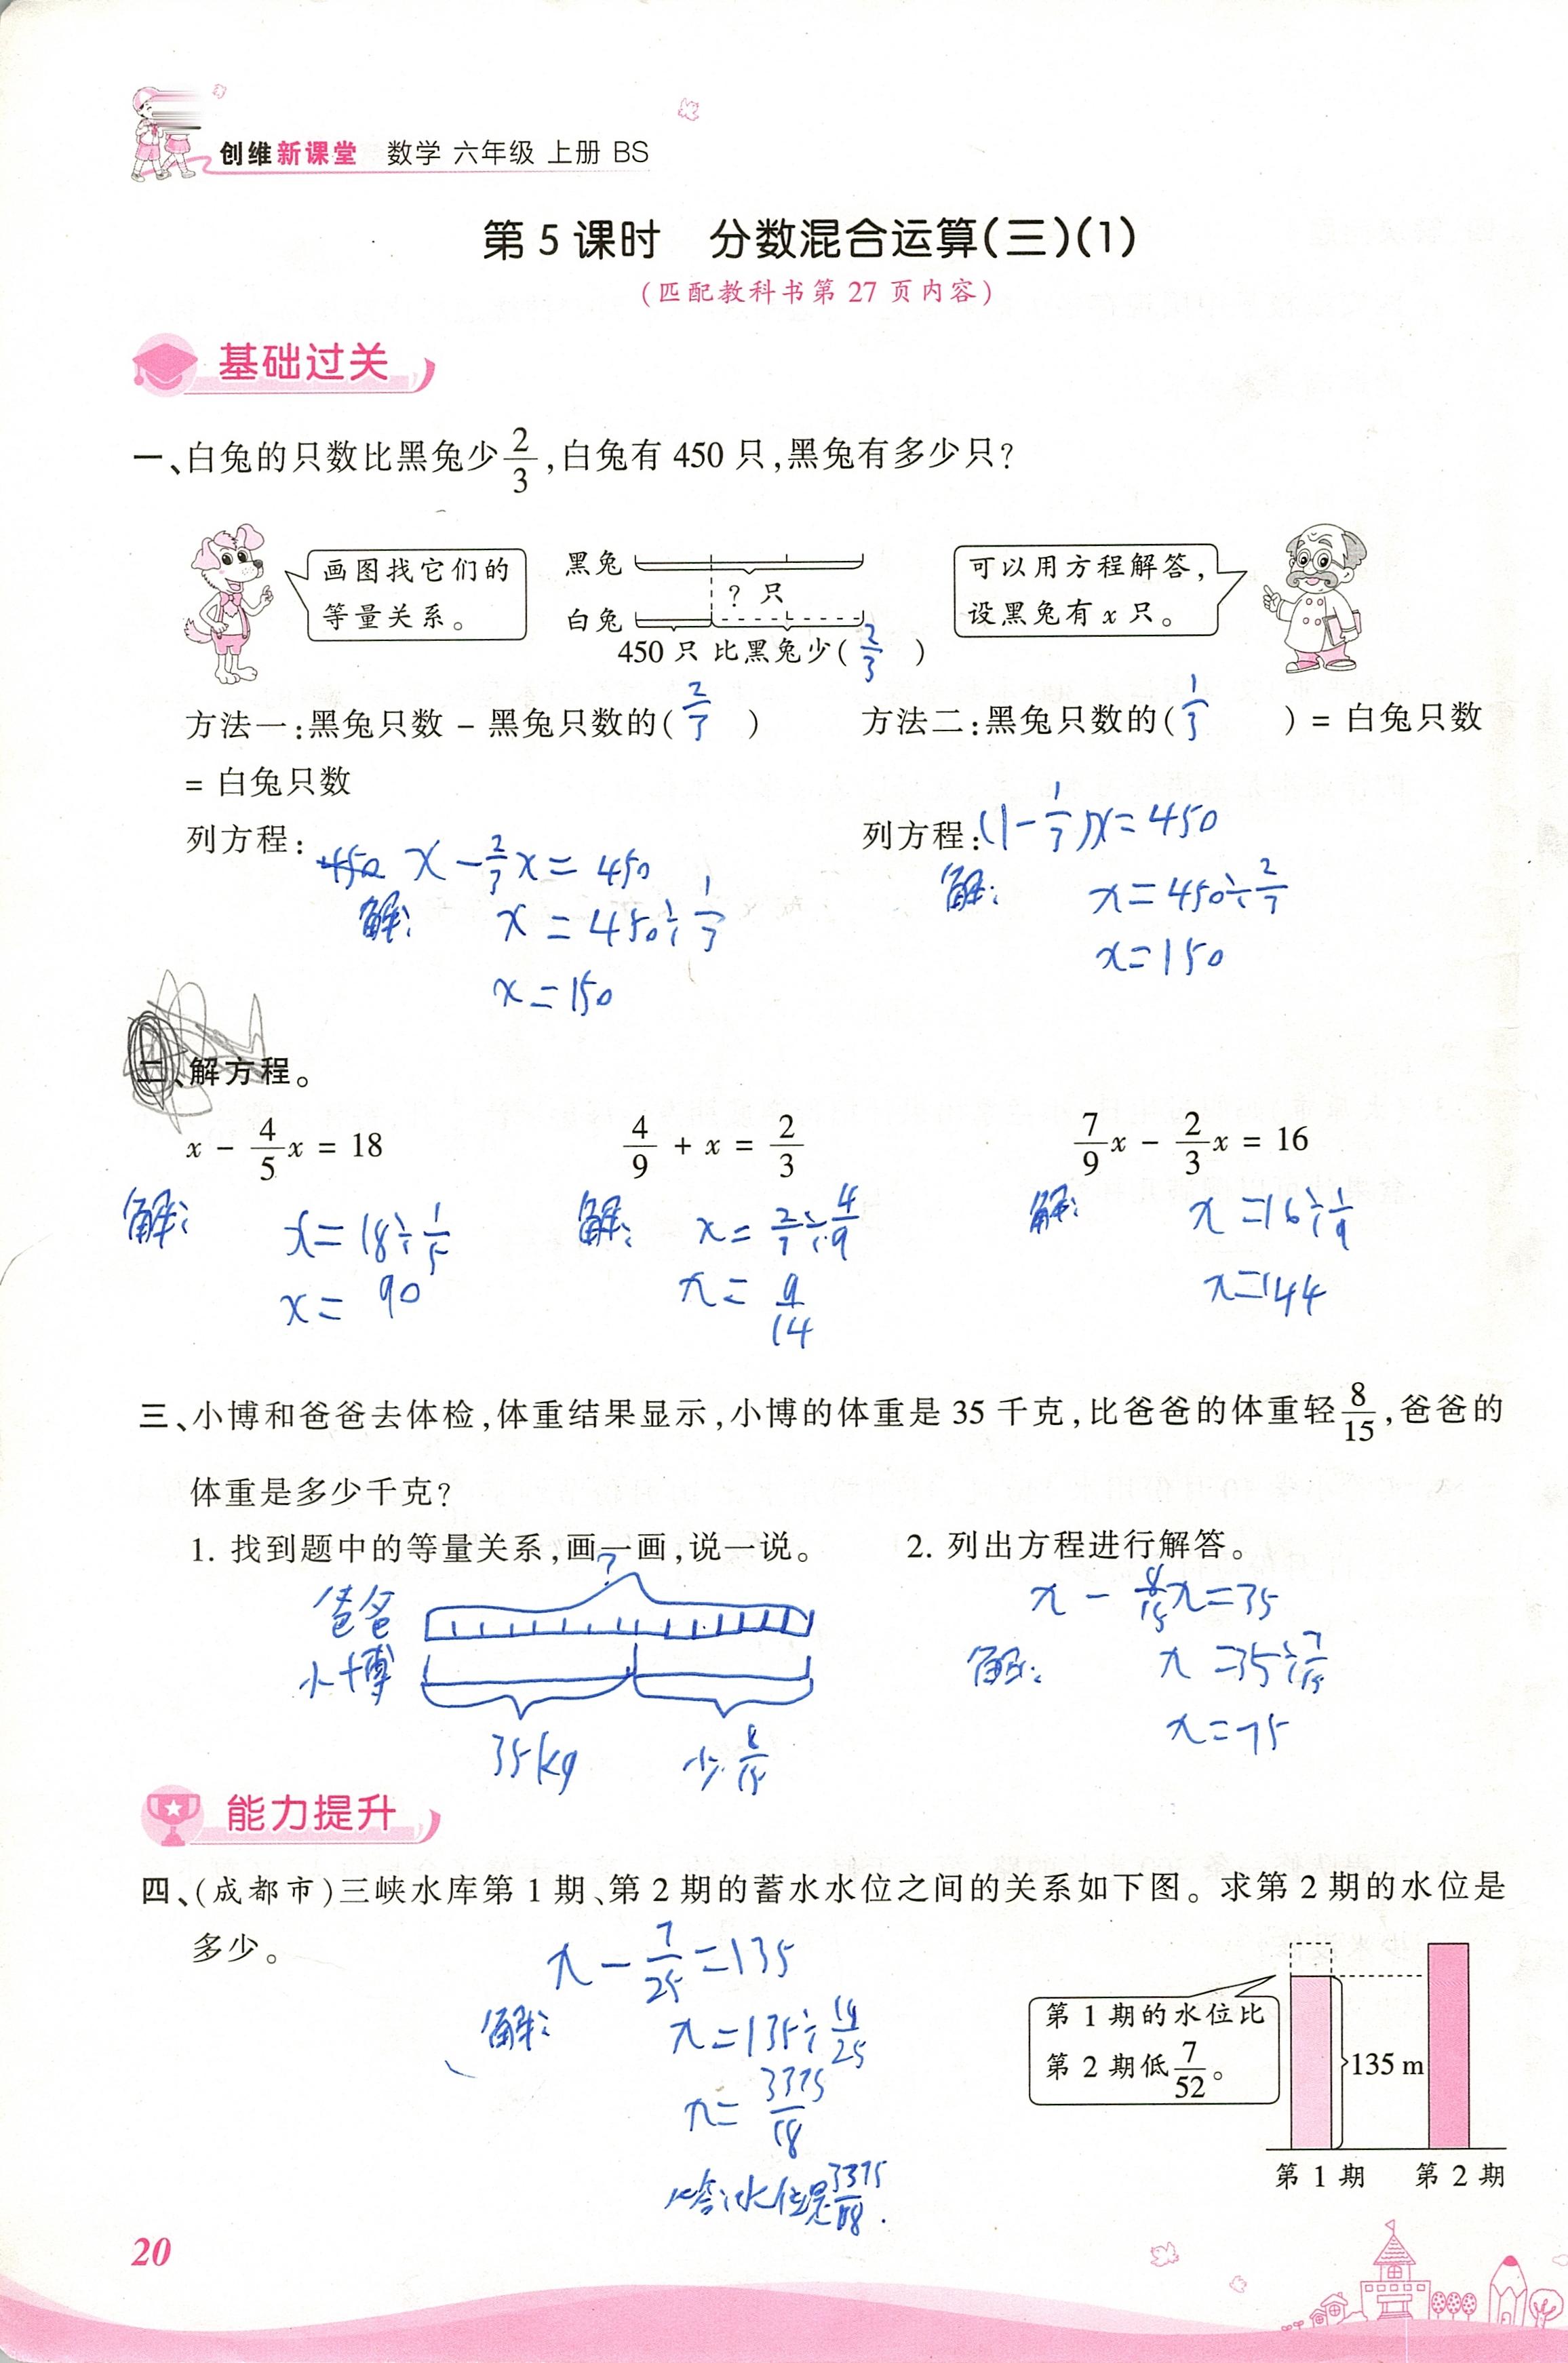 创维新课堂 数学 六年级 上册 BS
第 5 课时 分数混合运算(三)(1)
(匹配教科书第 27 页内容)
基础过关
一、白兔的只数比黑兔少2/3,白兔有 450 只,黑兔有多少只?
画图找它们的
等量关系。
黑兔
? 只
白兔
450 只 比黑兔少( 2/3 )
可以用方程解答,
设黑兔有 x 只。
方法一:黑兔只数 - 黑兔只数的( 2/3 )
= 白兔只数
方法二:黑兔只数的( 1/3 ) = 白兔只数
列方程: 450 x - 2/3 x = 450
解: x = 450 ÷ 1/3
x = 150
列方程: (1 - 1/3)x = 450
解: x = 450 ÷ 2/3
x = 150
二、解方程。
x - 4/5 x = 18
解: x = 18 ÷ 1/5
x = 90
4/9 + x = 2/3
解: x = 2/3 ÷ 4/9
x = 9/14
7/9 x - 2/3 x = 16
解: x = 16 ÷ 1/9
x = 144
三、小博和爸爸去体检,体重结果显示,小博的体重是 35 千克,比爸爸的体重轻8/15,爸爸的
体重是多少千克?
1. 找到题中的等量关系,画一画,说一说。
?
爸爸
小博
35kg 少 8/15
2. 列出方程进行解答。
x - 8/15 x = 35
解: x = 35 ÷ 7/15
x = 75
能力提升
四、(成都市)三峡水库第 1 期、第 2 期的蓄水水位之间的关系如下图。求第 2 期的水位是
多少。
x - 7/25 = 135
解: x = 135 ÷ 18/25
x = 3375/18
答:水位是3375/18.
第 1 期的水位比
第 2 期低7/52。
135 m
第 1 期 第 2 期
20